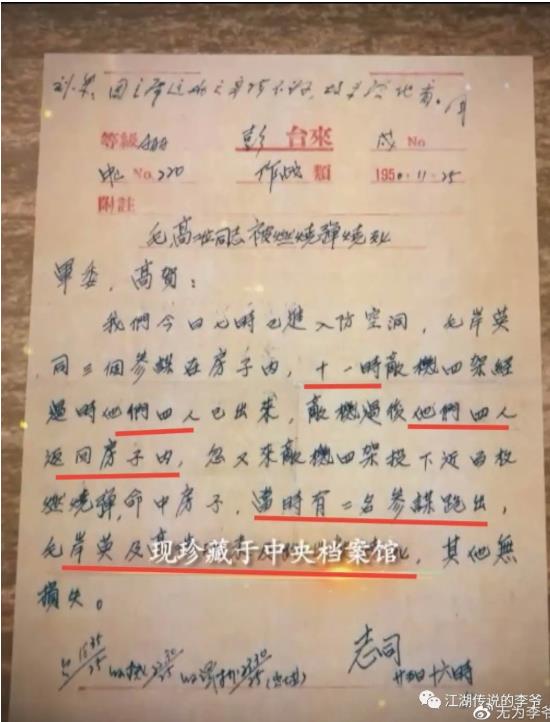 等級 彭台來 戌 No
No. 220 作战 類 1950.11.25
附註
毛高二位同志被燃燒彈燒死
軍委，高賀：
我們今日七時已進入防空洞，毛岸英
同三個參謀在房子内，十一時敵機四架經
過時他們四人已出来，敵機過後他們四人
返回房子内，忽又來敵機四架投下近百枚
燃燒彈，命中房子，當時有二名參謀跑出，
毛岸英及，其他無
现珍藏于中央档案馆
損失。
志司
廿五日十六時
江湖传说的李爷
@无为李爷